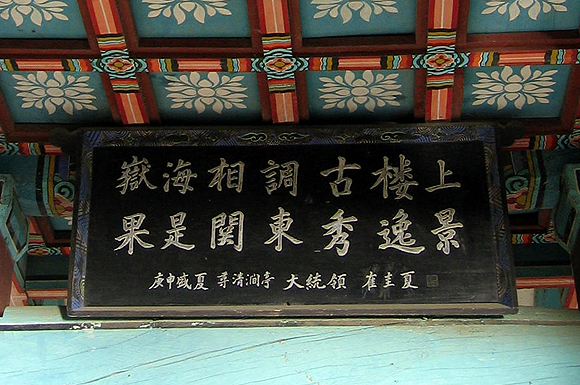 嶽海相調古楼上
果是関東秀逸景
庚申盛夏 尋清澗亭 大統領 崔圭夏